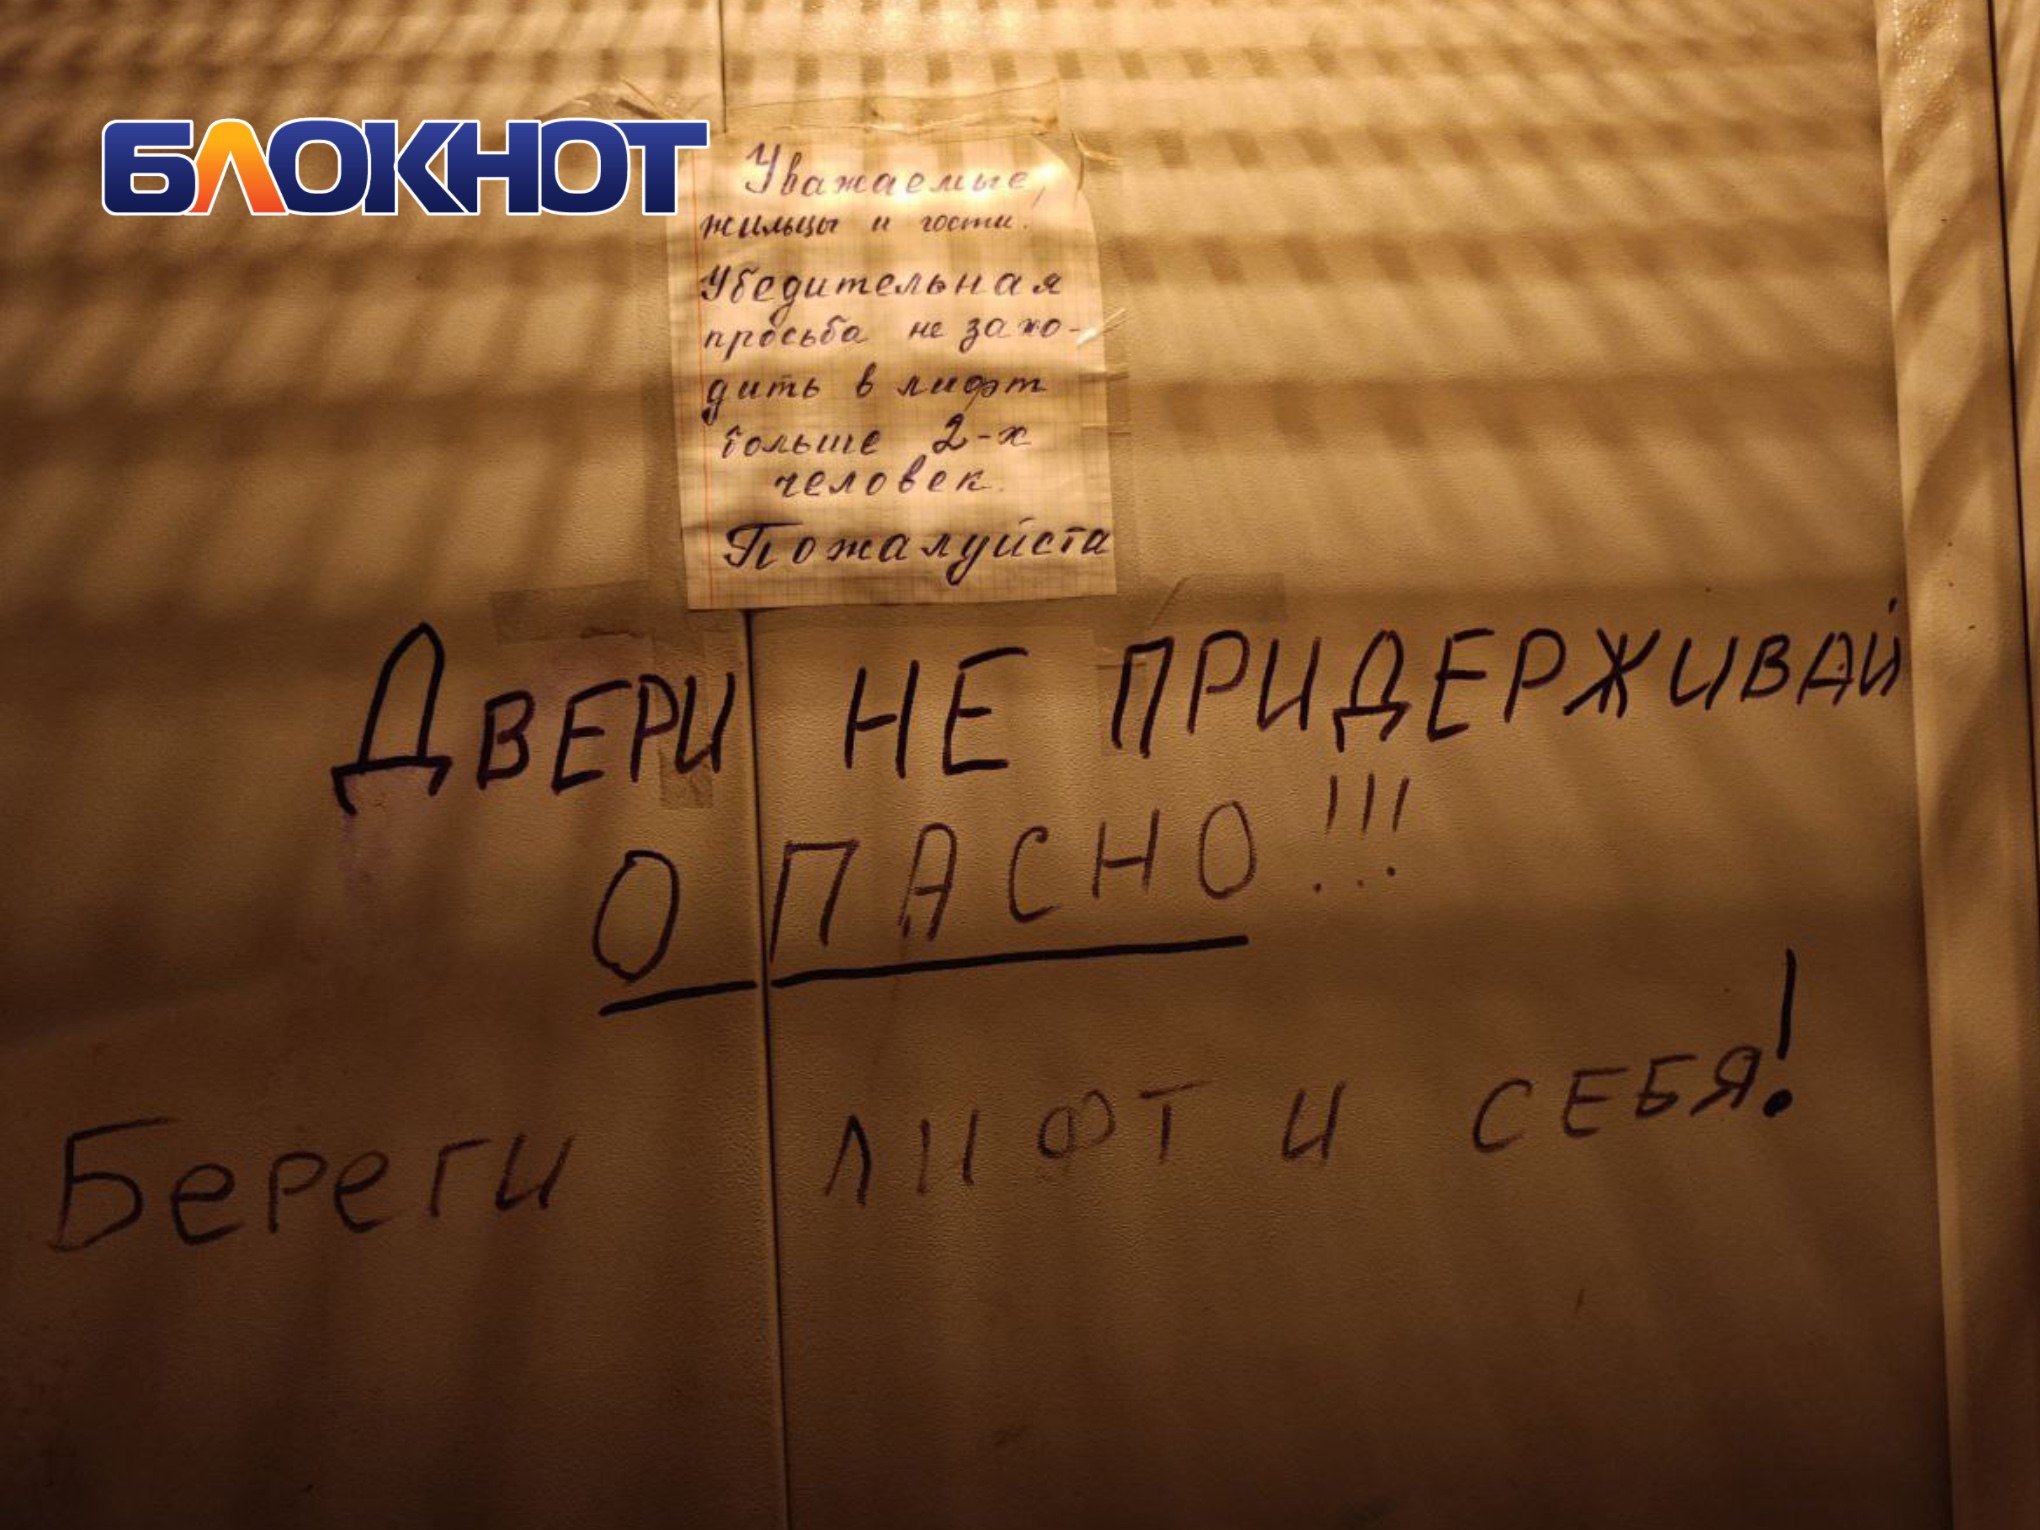 БЛОКНОТ
Уважаемые,
жильцы и гости.
Убедительная
просьба не захо-
дить в лифт
больше 2-х
человек.
Пожалуйста
ДВЕРИ НЕ ПРИДЕРЖИВАЙ
ОПАСНО!!!
Береги ЛИФТ И СЕБЯ!